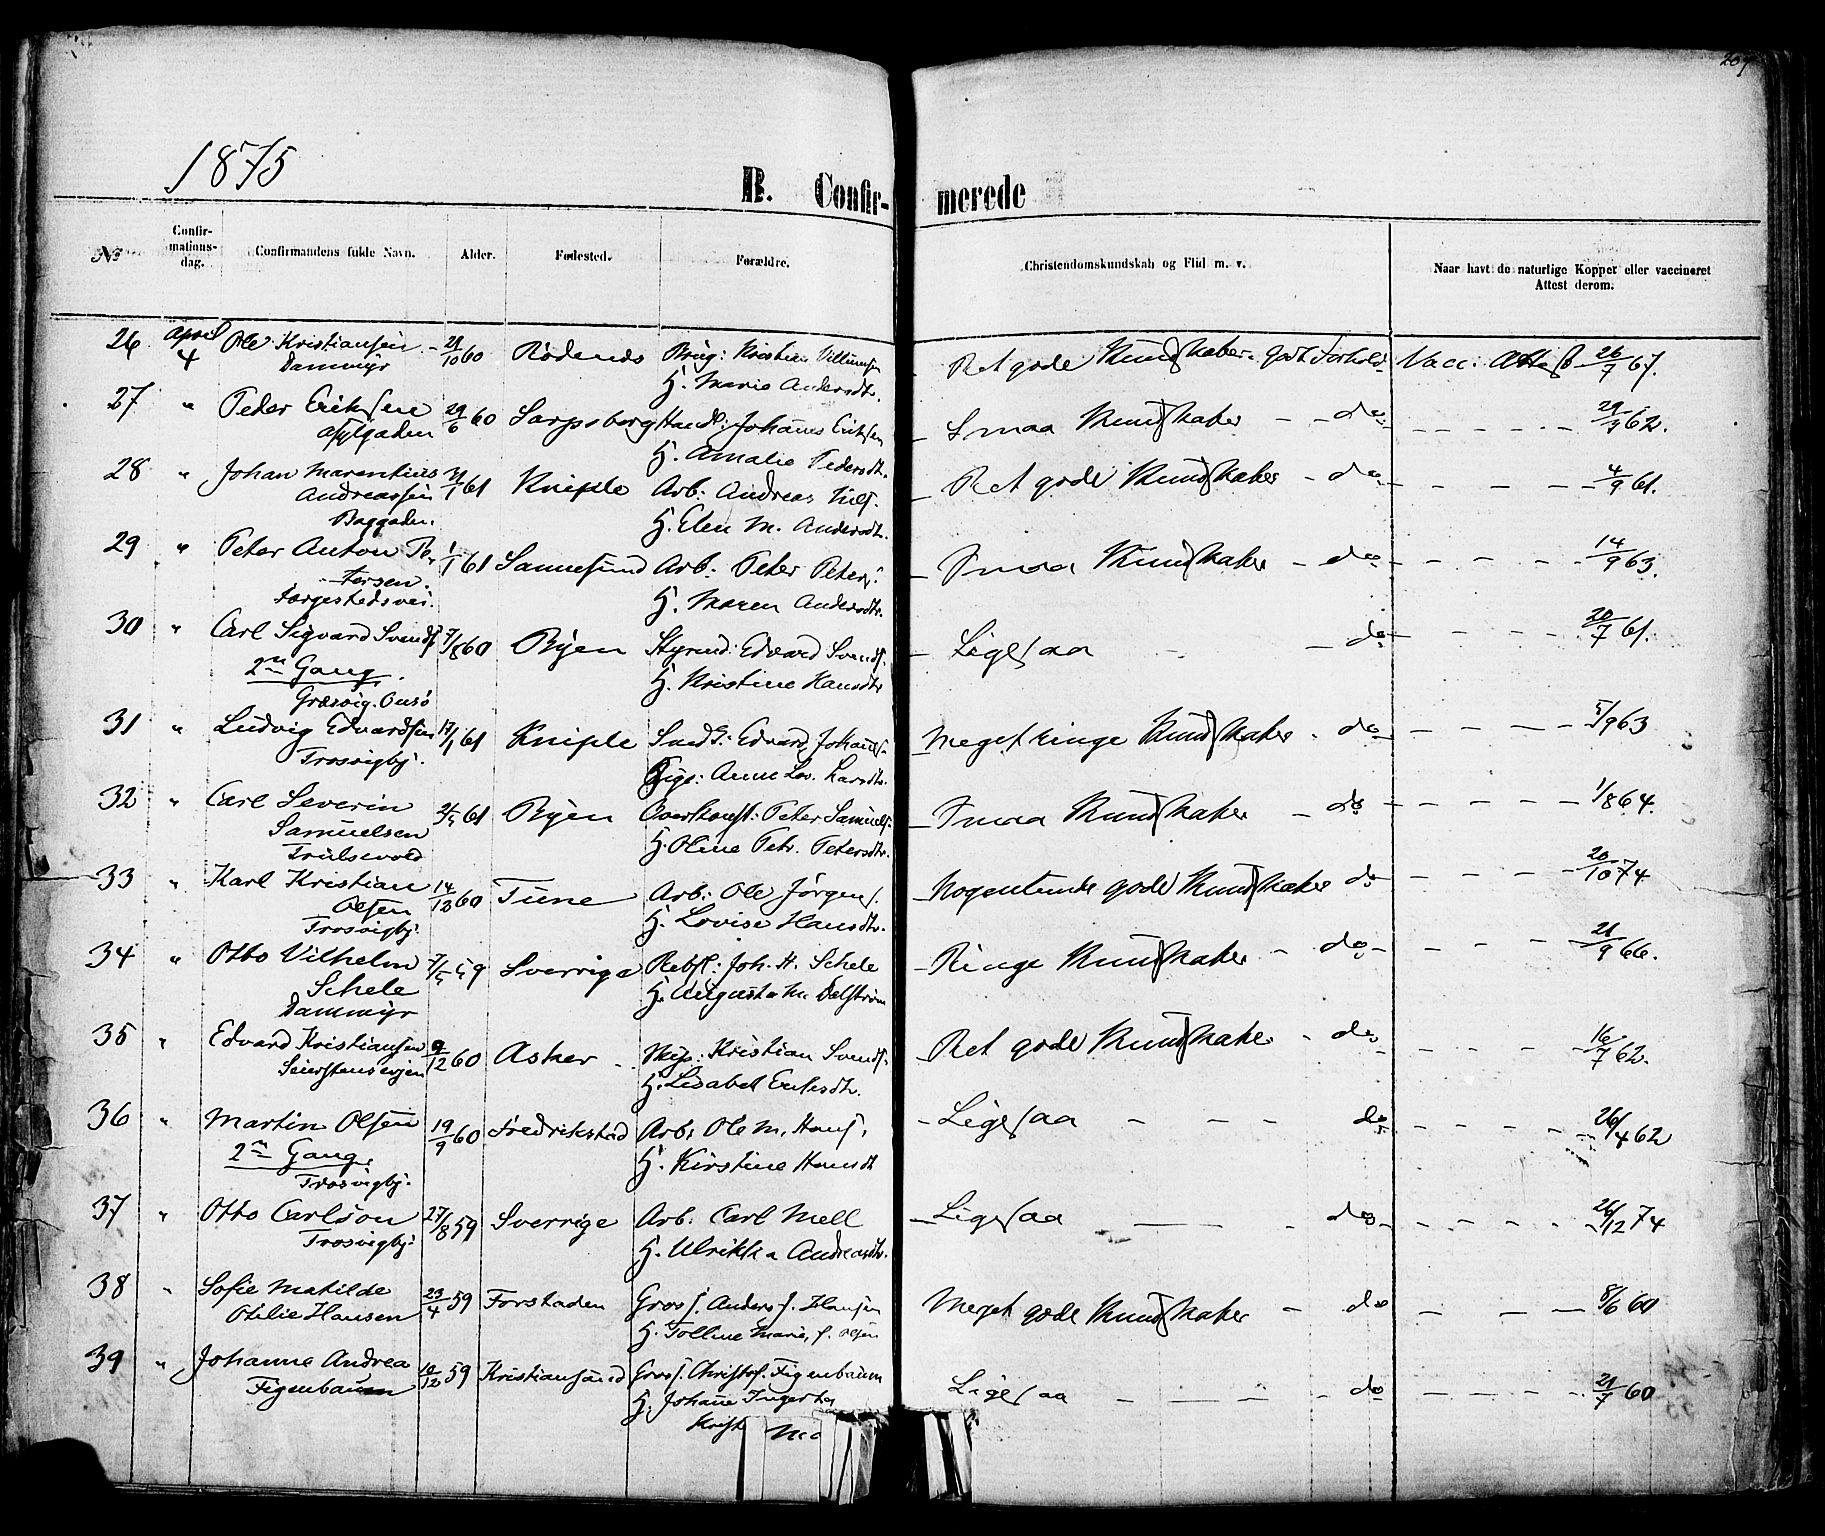 209
1875
B. Confir-merede
No
Confir-
mations-
dag.
Confirmandens fulde Navn.
Alder.
Fødested.
Forældre.
Christendomskundskab og Flid m. v.
Naar havt de naturlige Kopper eller vaccineret
Attest derom.
26 April 4 Ole Kristiansen 21/10 60 Rødenes Brug: Kristian Villumsen Ret gode Kundskaber. godt Forhold Vacc: Attest 26/7 67.
Dammyr H. Marie Andersdtr.
27 " Peder Eriksen 29/6 60 Sarpsborg Handl: Johannes Eriksen Smaa Kundskaber - - do - - - - 29/9 62.
Asylgaden H. Amalie Pedersdtr.
28 " Johan Marentius 31/1 61 Kniple Arb: Andreas Nils. Ret gode Kundskaber do - - - - 4/9 61.
Andreassen H. Elen M. Andersdtr.
Baggaden.
29 " Peter Anton Pe- 1/1 61 Sannesund Arb: Peter Peters. Smaa Kundskaber - do - - - - 14/9 63.
tersen. H. Maren Andersdtr.
Færgestedsvei.
30 " Carl Sigvard Svends. 7/8 60 Byen Styrmd: Edvard Svends. Ligesaa - - do - - - - 20/7 61.
2den Gang. H. Kristine Hansdtr
Græsvig. Onsø
31 " Ludvig Edvardsen 17/1 61 Kniple Smed: Edvard Johans. Meget ringe Kundskaber - do - - - - 5/9 63
Trosvigbj. Pige: Anne Lov. Larsdtr.
32 " Carl Severin 21/5 61 Byen Overkonst: Peter Samuels. Smaa Kundskaber - do - - - - 1/8 64.
Samuelsen H. Oline Petr. Petersdtr.
Trulsevold
33 " Karl Kristian 14/12 60 Tune Arb: Ole Jørgens. Nogenlunde gode Kundskaber do - - - - 20/10 74.
Olsen H. Lovise Hansdtr.
Trosvigbj.
34 " Otto Vilhelm 7/5 59 Sverrige Rebsl: Joh. H. Schele Ringe Kundskaber - do - - - - 21/9 66.
Schele H. Augusta M. Dalstrøm
Dammyr
35 " Edvard Kristiansen 9/12 60 Asker Skip: Kristian Svends. Ret gode Kundskaber - do - - - - 16/7 62.
Seierstensveien H. Lisabet Eriksdtr.
36 " Martin Olsen 19/9 60 Fredrikstad Arb: Ole M. Hans. Ligesaa - - - do - - - - 26/4 62
2den Gang. H. Kirstine Hansdt
Trosvigbj.
37 " Otto Carlson 27/8 59 Sverrige Arb: Carl Mell Ligesaa - - - do - - - - 26/12 74
Trosvigbj. H. Ulrikka Andreasdtr.
38 " Sofie Matilde 23/4 59 Forstaden Gross. Anders J. Hansen Meget gode Kundskaber - do - - - 8/6 60
Otilie Hansen H. Tolline Marie, f. Olsen
39 " Johanne Andrea 10/12 59 Kristiansund Gross. Christof. Figenbaum Ligesaa - - - do - - - - 21/7 60
Figenbaum H. Johanne Ingerha
Krist